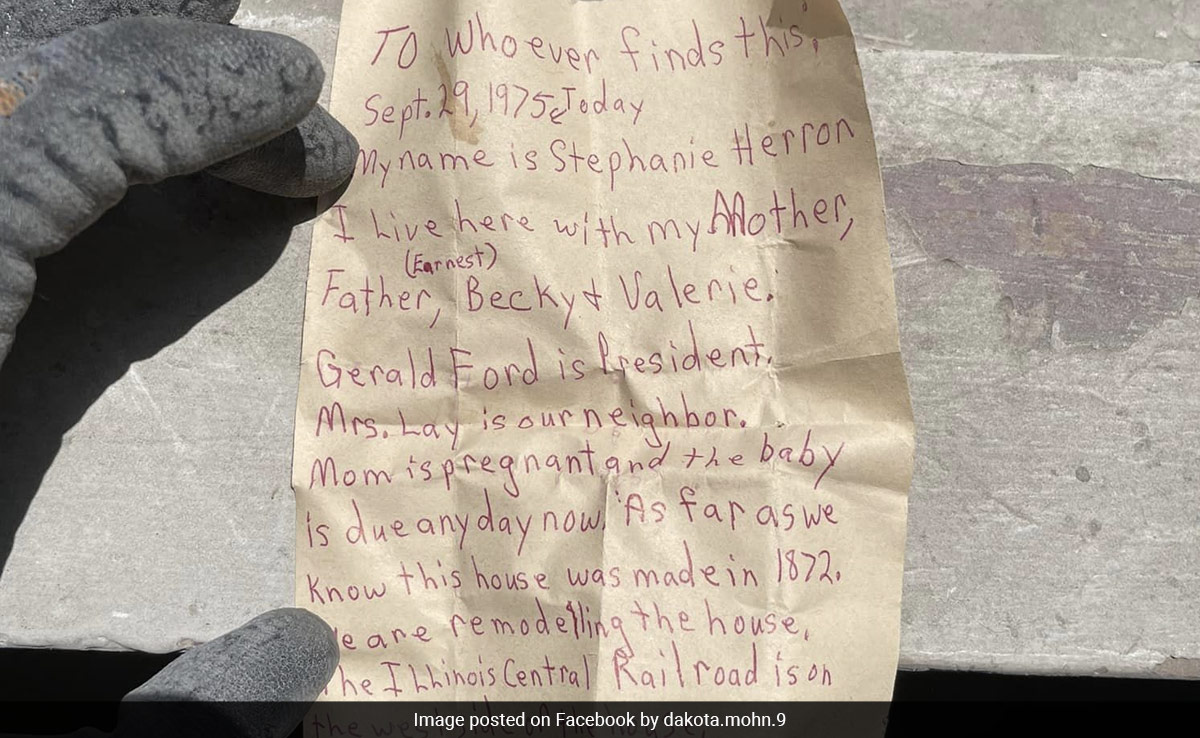 TO Whoever finds this,
Sept. 29, 1975 Today
My name is Stephanie Herron
I Live here with my Mother,
(Earnest)
Father, Becky & Valerie.
Gerald Ford is President.
Mrs. Lay is our neighbor.
Mom is pregnant and the baby
is due any day now. As far as we
know this house was made in 1872.
We are remodelling the house,
The Illinois Central Railroad is on
the west side of the house,
Image posted on Facebook by dakota.mohn.9